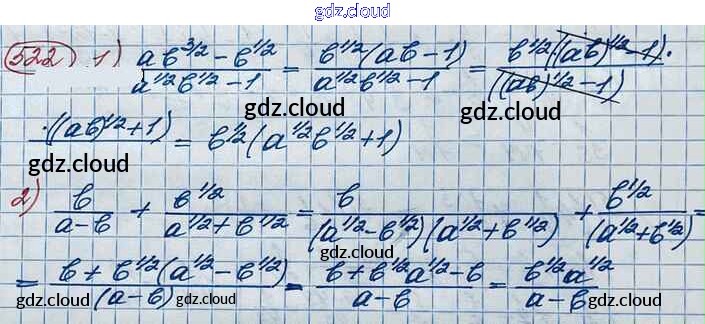 gdz.cloud
522 1) (ab^{3/2} - b^{1/2})/(a^{1/2}b^{1/2} - 1) = (b^{1/2}(ab - 1))/(a^{1/2}b^{1/2} - 1) = (b^{1/2}((ab)^{1/2} - 1)·)/(((ab)^{1/2} - 1))
gdz.cloud gdz.cloud
·((ab)^{1/2} + 1) = b^{1/2}(a^{1/2}b^{1/2} + 1)
gdz.cloud gdz.cloud
2) b/(a - b) + b^{1/2}/(a^{1/2} + b^{1/2}) = b/((a^{1/2} - b^{1/2})(a^{1/2} + b^{1/2})) + b^{1/2}/((a^{1/2} + b^{1/2})) =
gdz.cloud
= (b + b^{1/2}(a^{1/2} - b^{1/2}))/((a - b)) = (b + b^{1/2}a^{1/2} - b)/(a - b) = (b^{1/2}a^{1/2})/(a - b)
gdz.cloud gdz.cloud gdz.cloud gdz.cloud